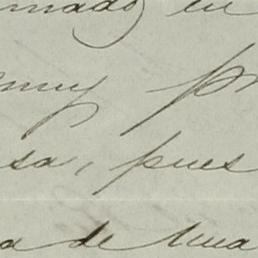 mado en
muy pr
sa, pues
a de una